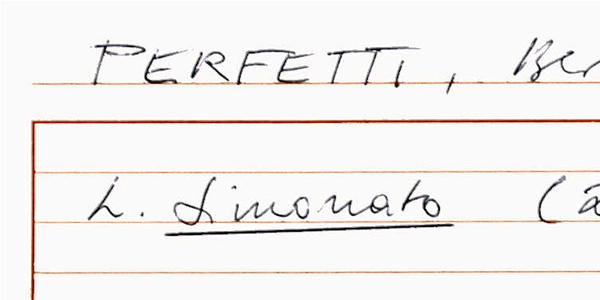 PERFETTI, Ber
L. Simonato (a